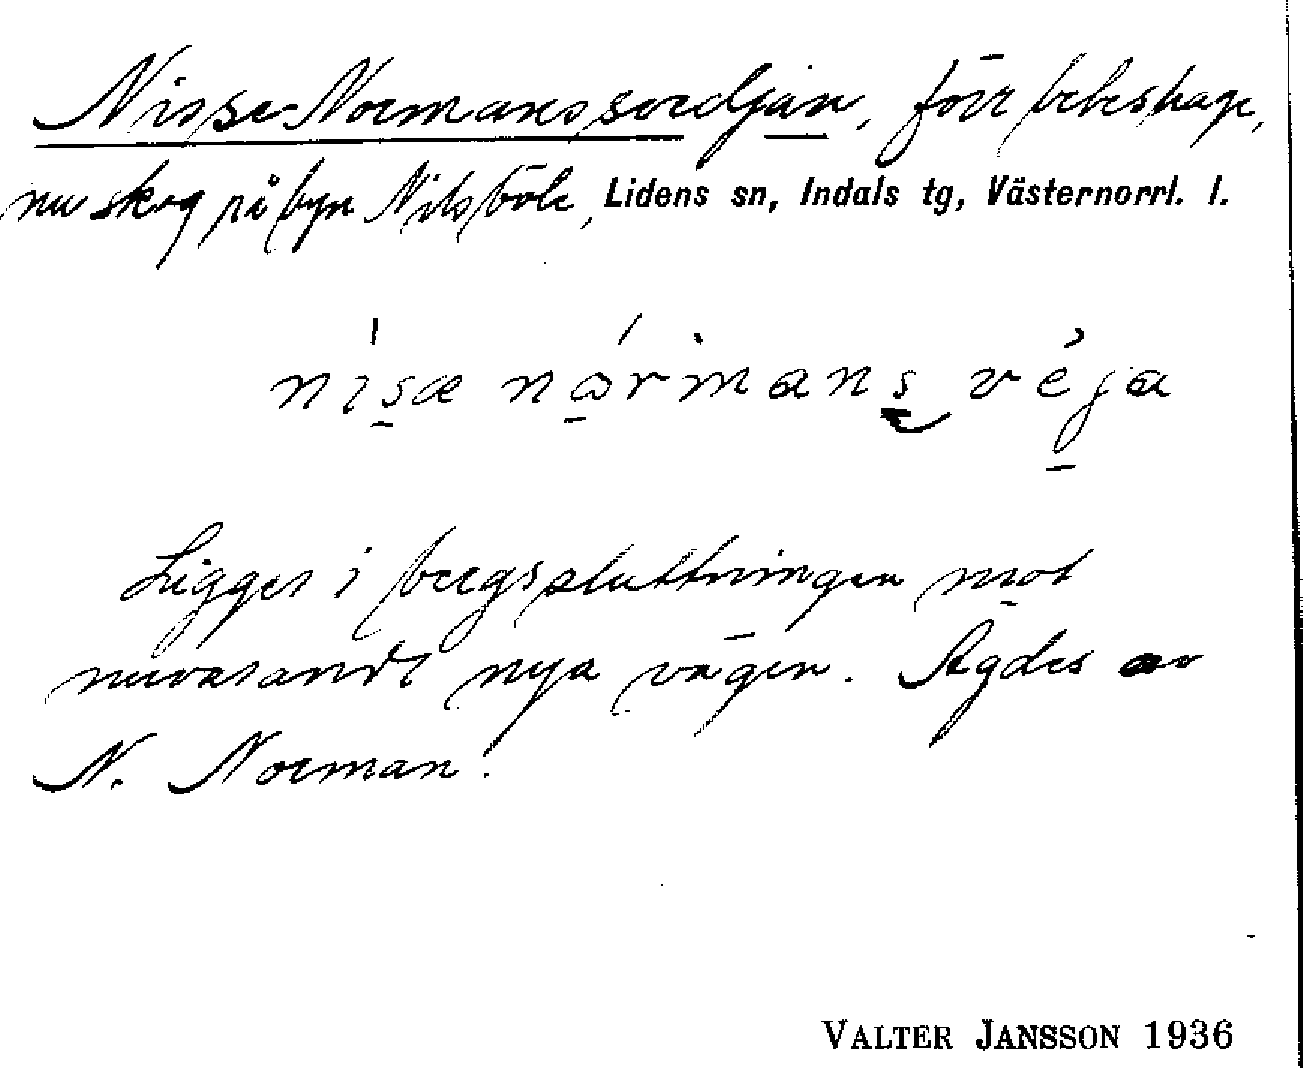 Nisse-Normanssvedjan, förr beteshage,
nu skog på byn Nilsböle, Lidens sn, Indals tg, Västernorrl. l.
nisæ nårmans véja
Ligger i bergsluttningen mot
nuvarande nya vägen. Ägdes av
N. Norman.
VALTER JANSSON 1936